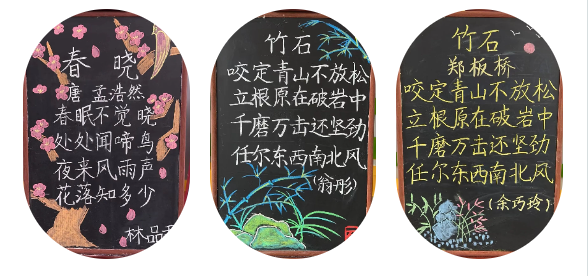 春 晓
唐 孟浩然
春眠不觉晓
处处闻啼鸟
夜来风雨声
花落知多少
林品
竹石
咬定青山不放松
立根原在破岩中
千磨万击还坚劲
任尔东西南北风
(翁彤)
竹石
郑板桥
咬定青山不放松
立根原在破岩中
千磨万击还坚劲
任尔东西南北风
(余巧玲)